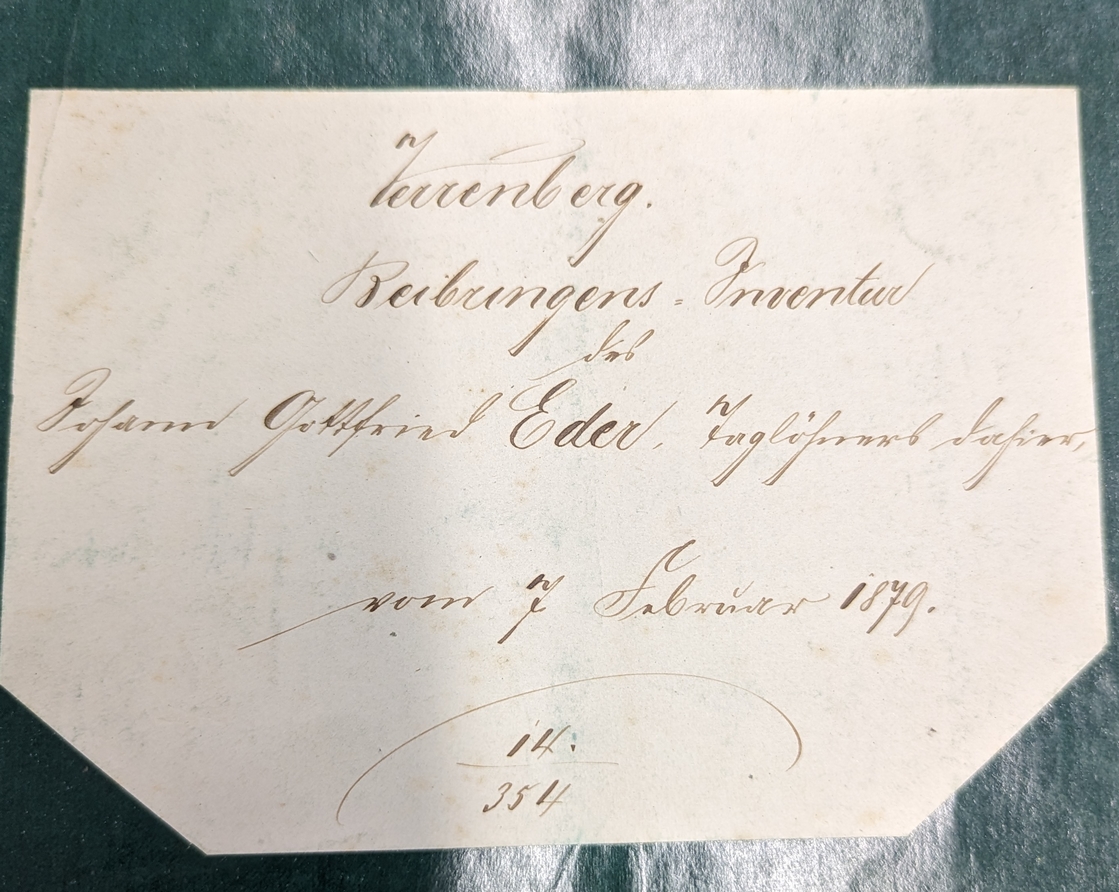 Verrenberg.
Beibringens-Inventur
des
Johann Gottfried Eder, Taglöhners dahier,
vom 7 Februar 1879.
14.
354